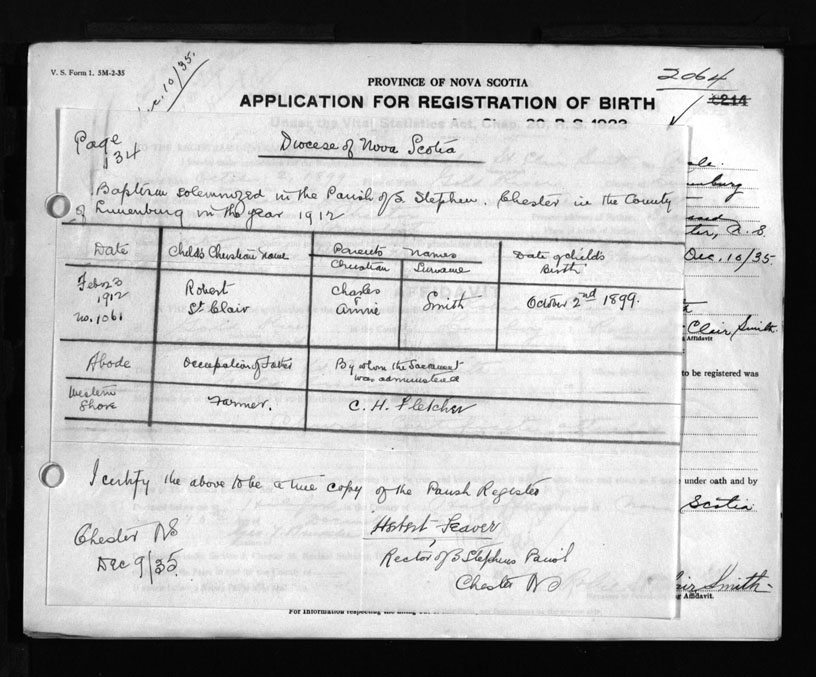 V. S. Form 1. 5M-2-35
10/35.
2064
PROVINCE OF NOVA SCOTIA
APPLICATION FOR REGISTRATION OF BIRTH
Page
134
Diocese of Nova Scotia
Baptism solemnized in the Parish of S. Stephen. Chester in the County
of Lunenburg in the year 1912
Date
Child's Christian Name
Parents Names
Christian
Surname
Date of child's
Birth
Feb 23
1912
no. 1061
Robert
St Clair
Charles
&
Annie
Smith
October 2nd 1899.
Abode
Occupation of Father
By whom the Sacrament
was administered
Western
Shore
Farmer.
C. H. Fletcher
I certify the above to be a true copy of the Parish Register
Chester NS
Dec 9/35.
Herbert Feaver
Rector of S Stephens Parish
Chester NS
Dec. 10/35.
Clair Smith
Affidavit
to be registered was
under oath and by
Scotia
Smith
Affidavit.
For information respecting the